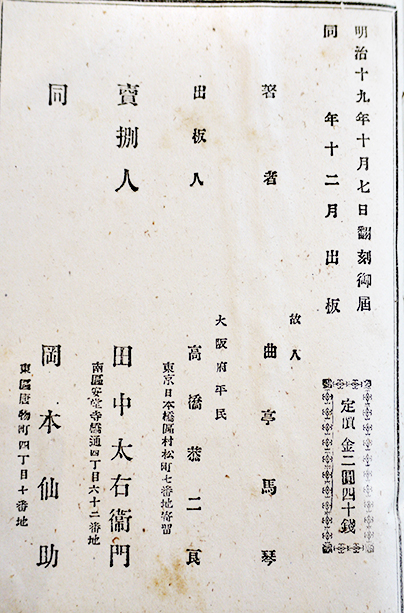 明治十九年十月七日翻刻御屆
同年十二月出板
定價金二圓四十錢
著者
故人
曲亭馬琴
出板人
大阪府平民
高橋恭二良
東京日本橋區村松町七番地寄留
賣捌人
田中太右衞門
南區安堂寺橋通四丁目六十二番地
同
岡本仙助
東區唐物町四丁目十番地